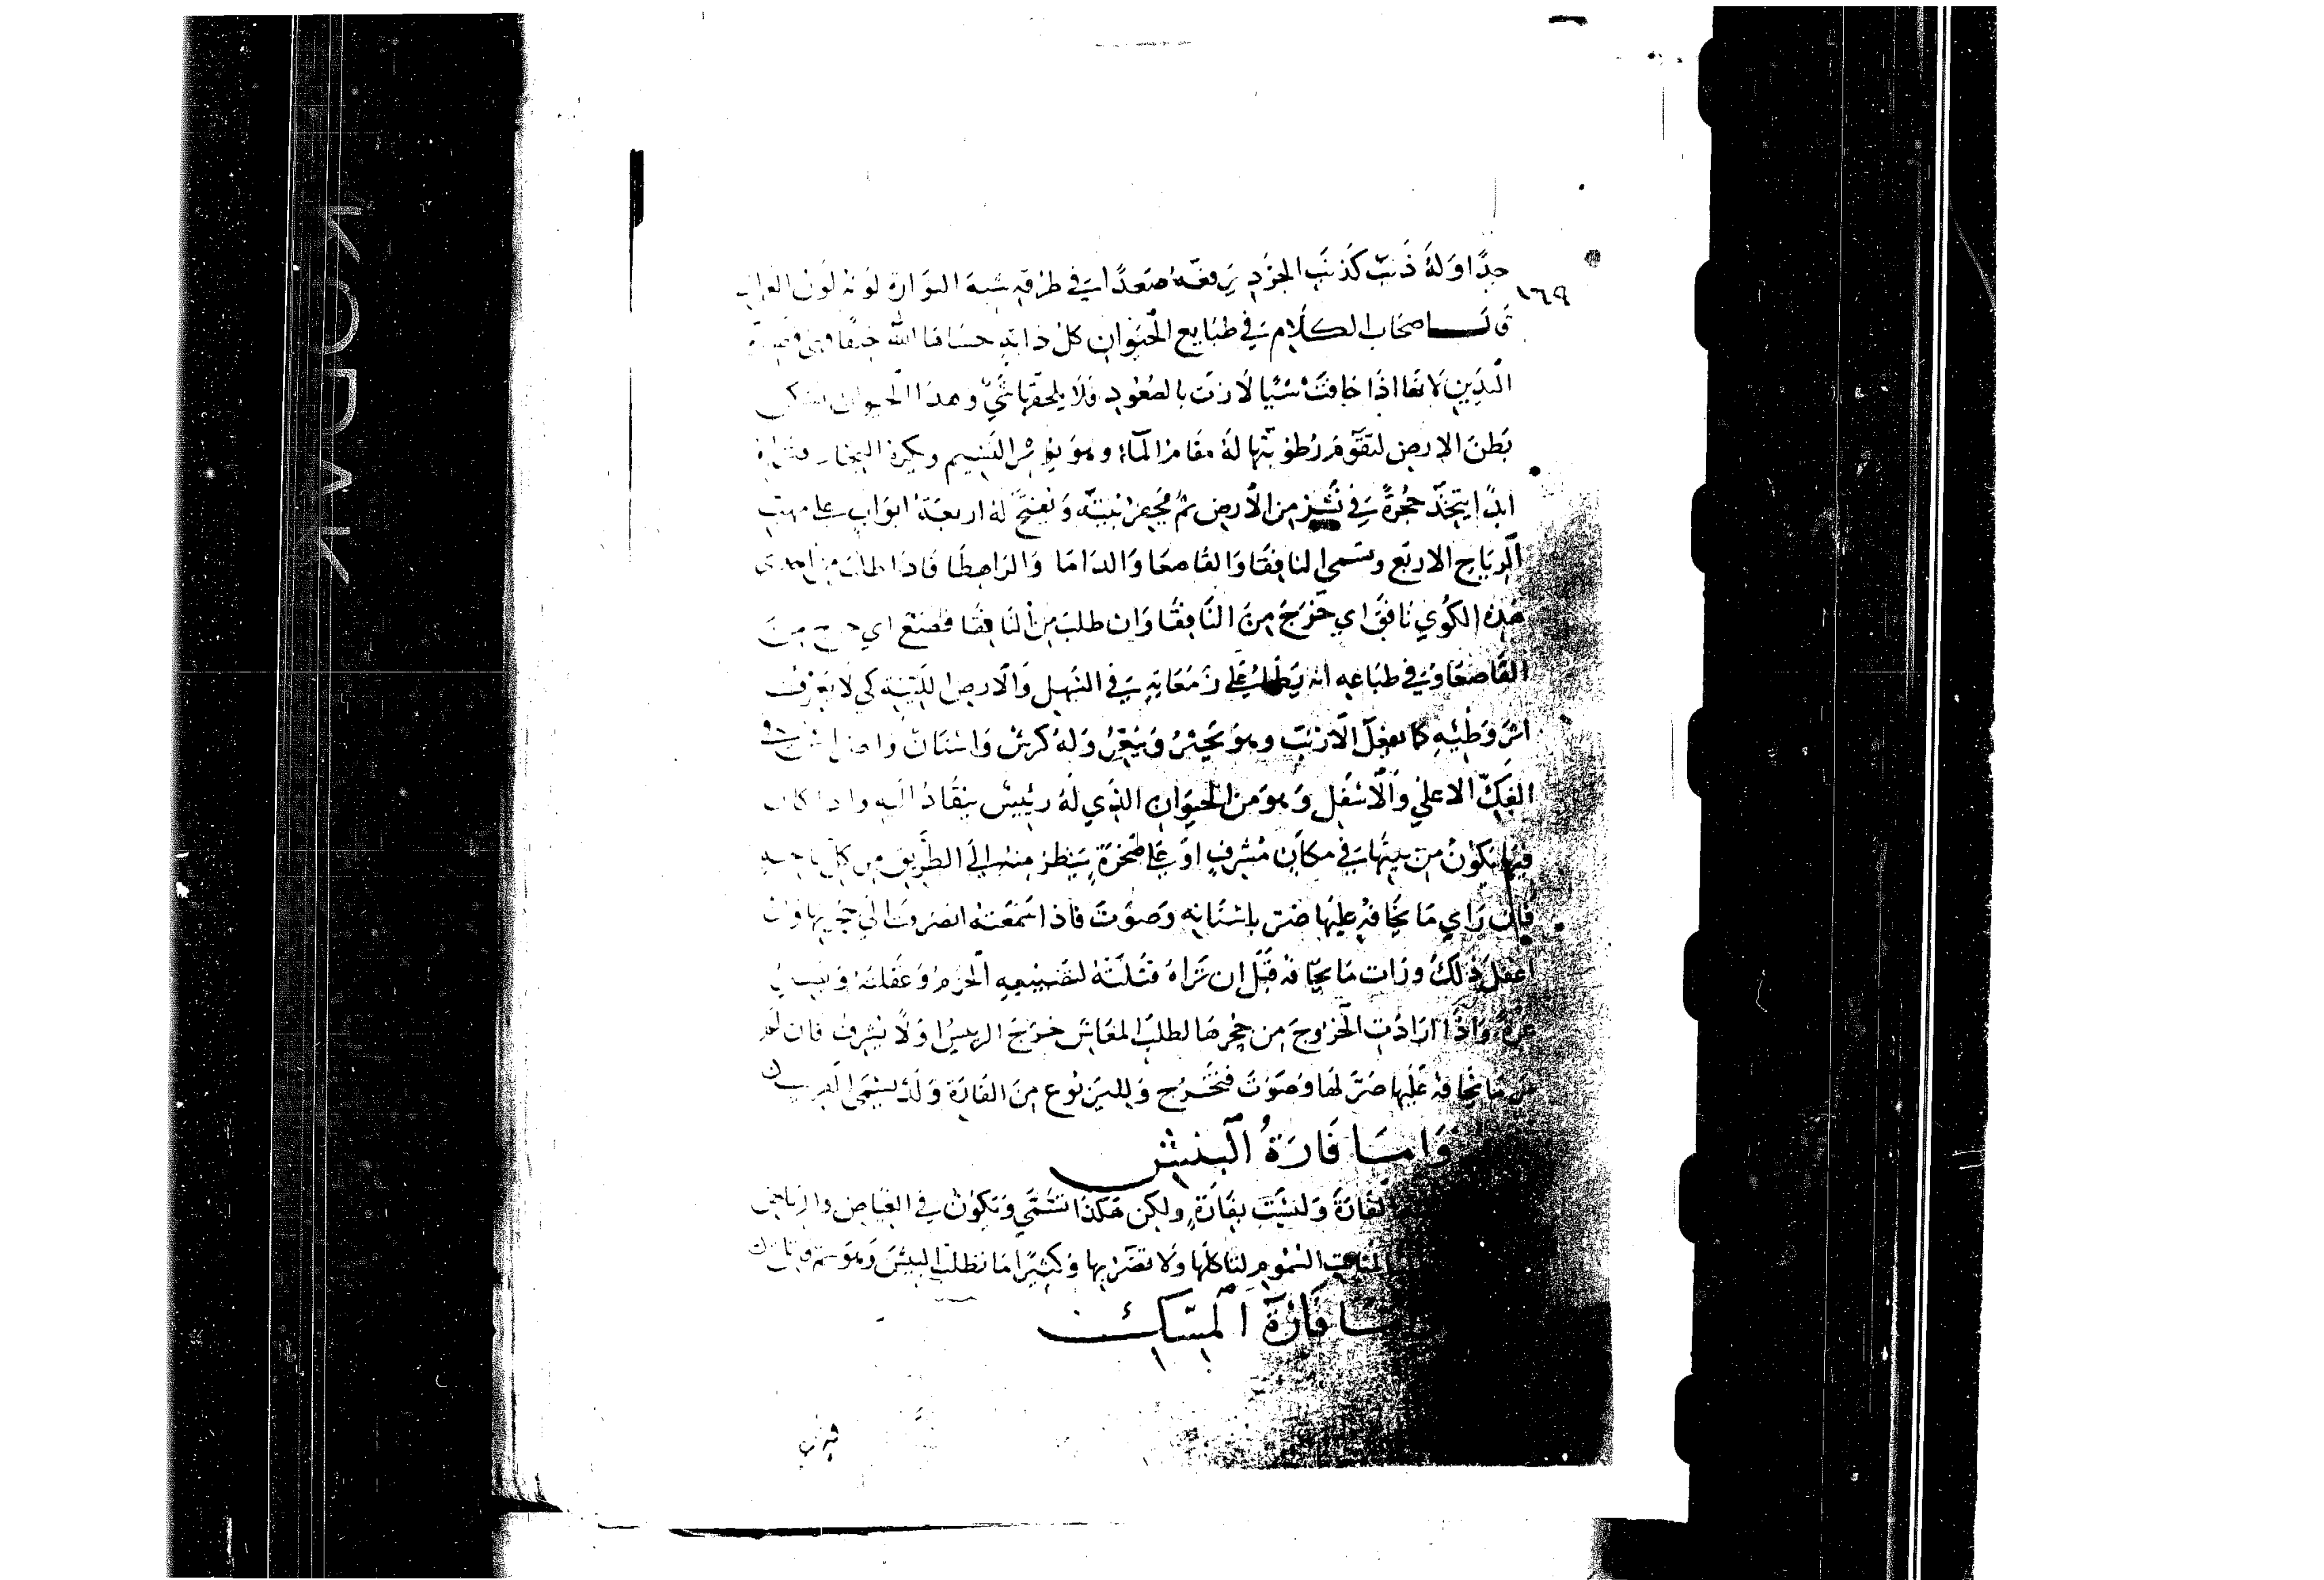 ١٦٩
جدًا وَلَهُ ذَنَبٌ كَذَنَبِ الجُرَذِ يَرفعَهُ صَعَدًا في طَرَفهِ شبه النوارة لونه لَون الغزال
قال اصحاب الكلام في طبايع الحيوان كل دابة حشاها الله خبثا فهي قصيرة
اليدين لانها اذا خافت شيئا لاذت بالصعود فلا يلحقها شي وهذا الحيوان يسكن
بطن الارض لتقوم رطوبتها له مقام الماء وهو يوثر النسيم ويكره البخار
ابدا يتخذ حجره في نشز من الارض ثم يحفر بيته ويفتح له اربعة ابواب على مهب
الرياح الاربع وتسمى النافقا والقاصعا والداما والراهطا فاذا طلب من احدى
هذه الكوي نافق اي خرج من النافقا وان طلب من النافقا قصع اي خرج من
القاصعا وفي طباعه انه يطا على زمعاته في السهل والارض اللينة كي لا يعرف
اثر وطئه كما يفعل الارنب وهو يجتر ويبعر وله كرش واسنان واضراس في
الفك الاعلي والاسفل وهو من الحيوان الذي له رئيس ينقاد اليه واذا كان
فيها يكون من بينها في مكان مشرف او على صخرة ينظر منها الي الطريق من كل ناحية
فان راي ما يخافه عليها صر باسنانه وصوت فاذا سمعته انصرفت الي حجرها فان
اغفل ذلك ورات ما يخافه قبل ان تراه قتلته لتضييعه الحزم وغفلته
غيره واذا ارادت الخروج من حجرها لطلب المعاش خرج الرييس اولا يشرف فان لم ير
ما يخافه عليها صر لها وصوت فتخرج ولليربوع من الفارة ولد يسمى الدرص
وَامّا فَارَةُ الْبِيشِ
الفارة وليست بفارة ولكن هكذا تسمي وتكون في الغياض والرياض
منابت السموم لتاكلها ولا تضر بها وكثيرا ما تطلب البيش وهو سم قاتل
وامّا فَارَةُ الْمِسْكِ